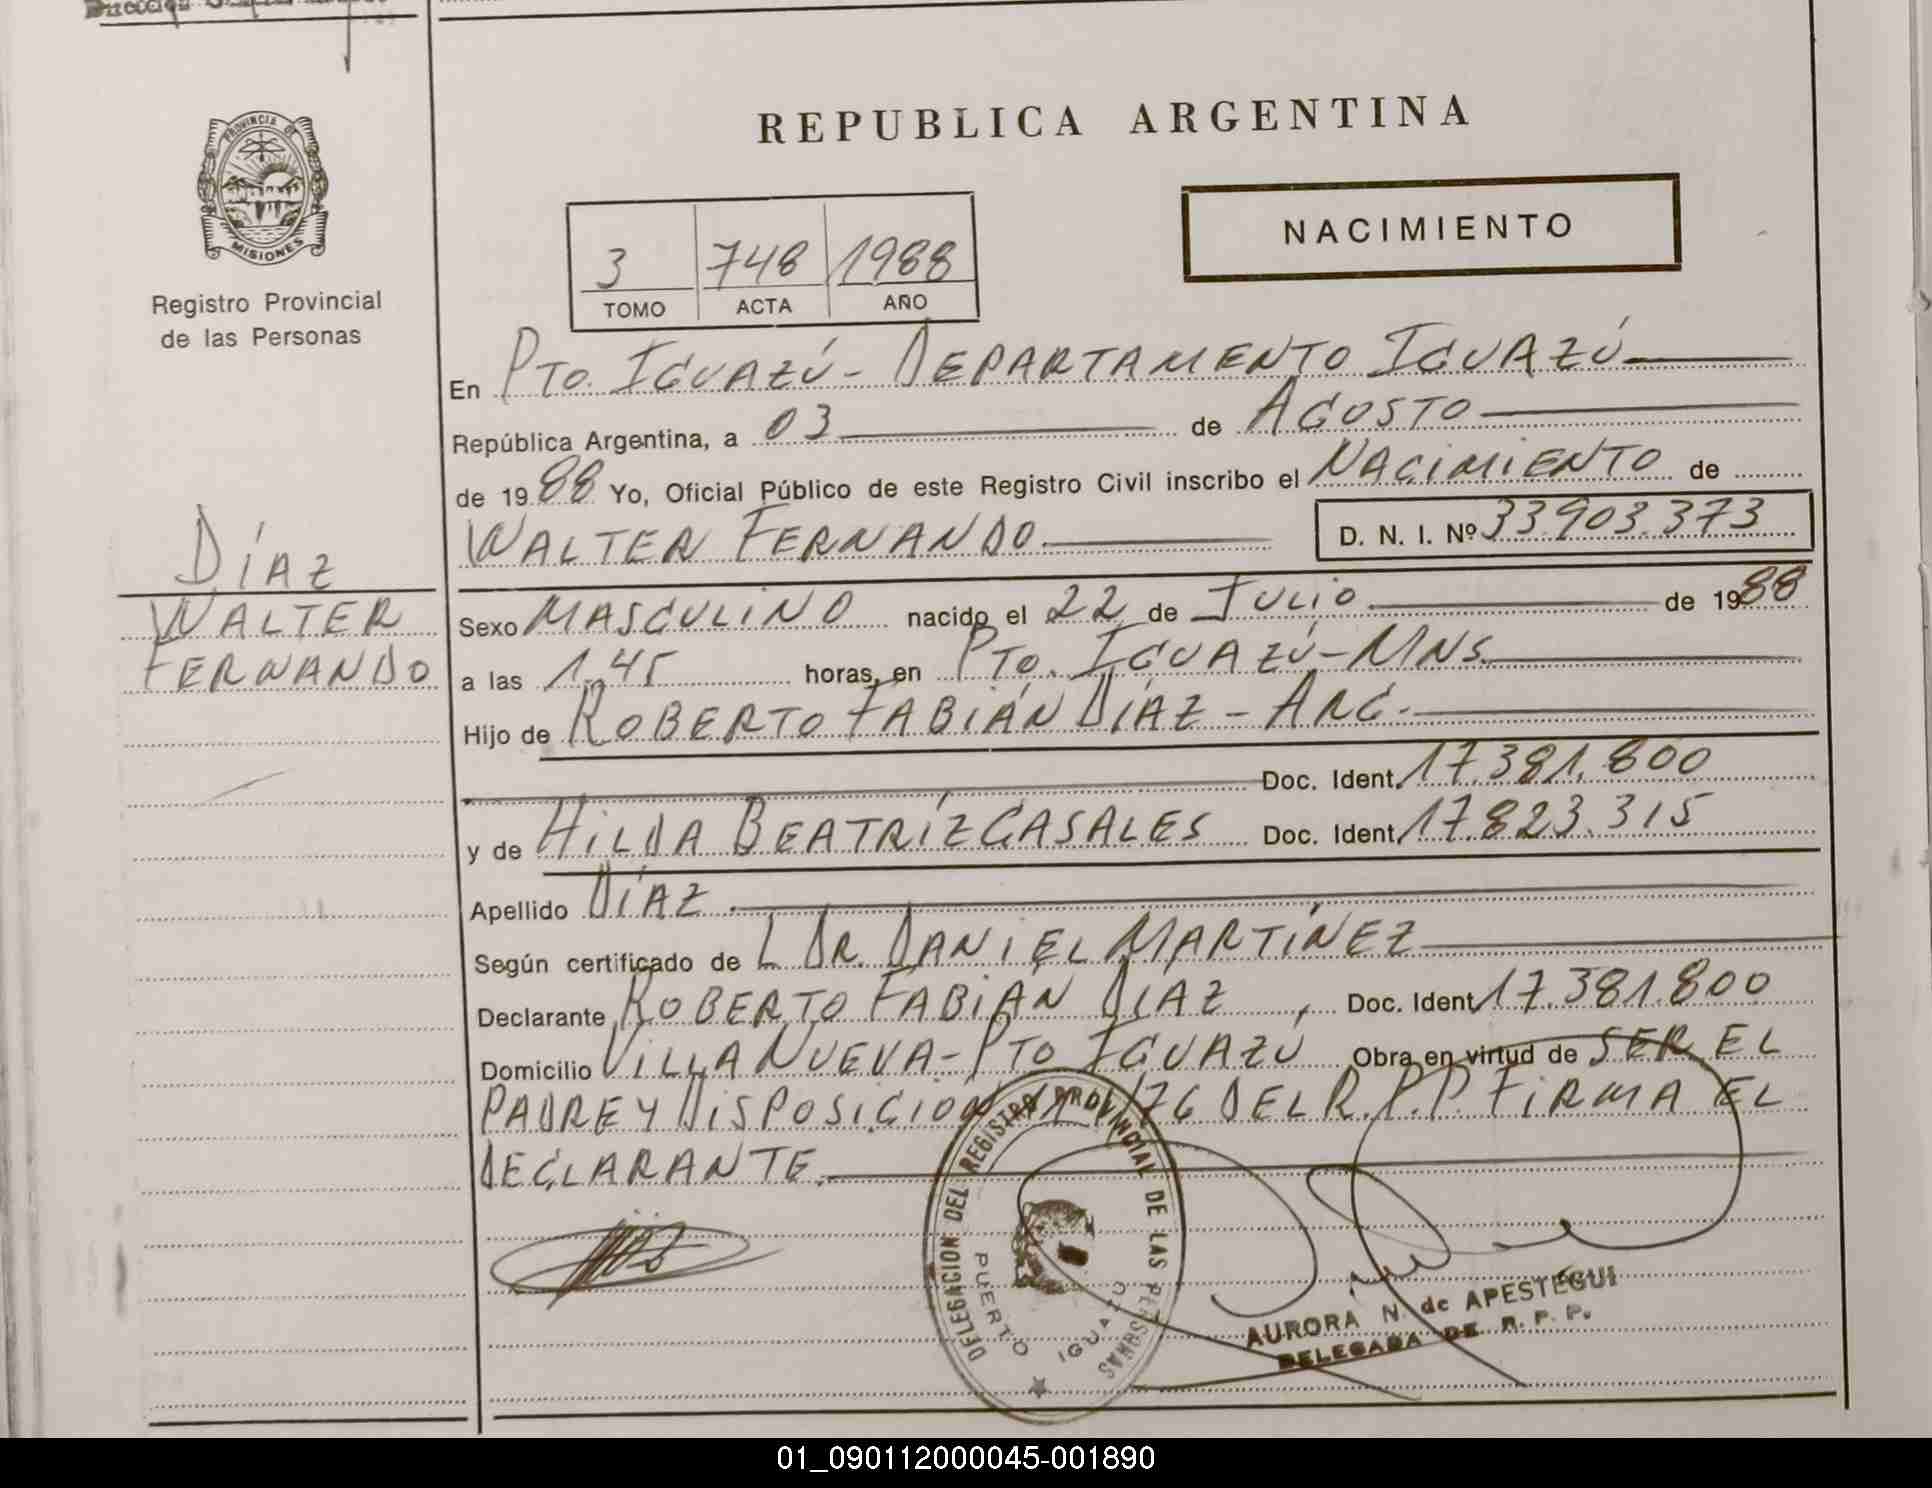 REPUBLICA ARGENTINA
PROVINCIA DE
MISIONES
Registro Provincial
de las Personas
NACIMIENTO
3 748 1988
TOMO ACTA AÑO
En PTO. IGUAZÚ - DEPARTAMENTO IGUAZÚ
República Argentina, a 03 de AGOSTO
de 1988 Yo, Oficial Público de este Registro Civil inscribo el NACIMIENTO de
WALTER FERNANDO D. N. I. Nº 33.903.373
DÍAZ
WALTER
FERNANDO
Sexo MASCULINO nacido el 22 de JULIO de 1988
a las 1.45 horas, en PTO. IGUAZÚ - MNS.
Hijo de ROBERTO FABIÁN DÍAZ - ARG.
Doc. Ident. 17.381.800
y de HILDA BEATRÍZ CASALES Doc. Ident. 17.823.315
Apellido DÍAZ
Según certificado de L DR. DANIEL MARTÍNEZ
Declarante ROBERTO FABIÁN DIAZ, Doc. Ident. 17.381.800
Domicilio VILLA NUEVA - PTO IGUAZÚ Obra en virtud de SER EL
PADRE Y DISPOSICIÓN 76 DEL R.P.P. FIRMA EL
DECLARANTE.
DELEGACION DEL REGISTRO PROVINCIAL DE LAS PERSONAS
PUERTO IGUAZU
AURORA N. de APESTEGUI
DELEGADA DE R. P. P.
01_090112000045-001890